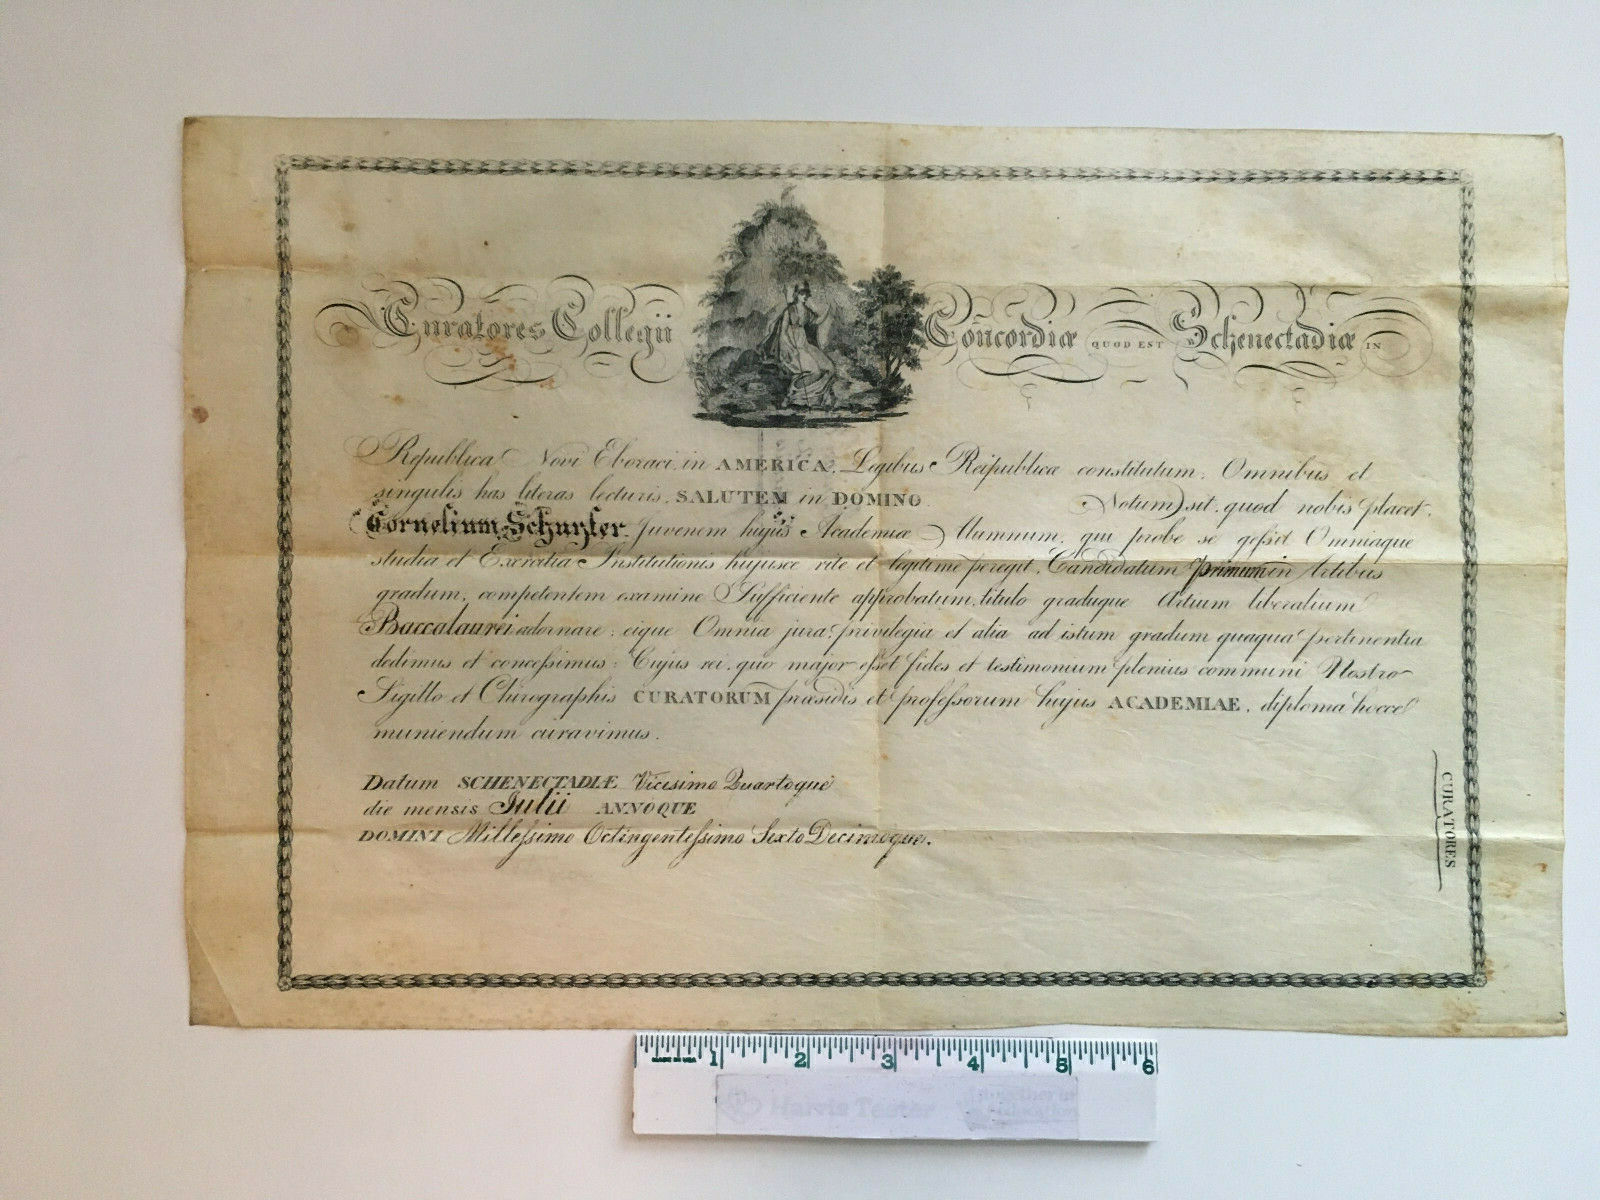 Curatores Collegii Concordiæ QUOD EST Schenectadiæ IN
Republica Novi Eboraci, in AMERICA, Legibus Reipublicæ constitutum; Omnibus et
singulis has literas lecturis, SALUTEM in DOMINO. Notum sit, quod nobis placet,
Cornelium, Juvenem hujus Academiæ Alumnum, qui probe se gefsit Omniaque
studia et Exercitia Institutionis hujusce rite et legitime peregit, Candidatum primum in Artibus
gradum, competentem examine Sufficiente approbatum, titulo graduque Artium liberalium
Baccalaurei adornare; eique Omnia jura, privilegia et alia ad istum gradum quaqua pertinentia
dedimus et concefsimus: Cujus rei, quo major efset fides et testimonium plenius communi Nostro
Sigillo et Chirographis CURATORUM præsidis et profefsorum hujus ACADEMIAE, diploma hocce
muniendum curavimus.
Datum SCHENECTADIÆ Vicesimo Quartoque
die mensis Julii ANNOQUE
DOMINI Millefsimo Octingentefsimo Sexto Decimoque.
CURATORES
1 2 3 4 5 6
Harris Teeter